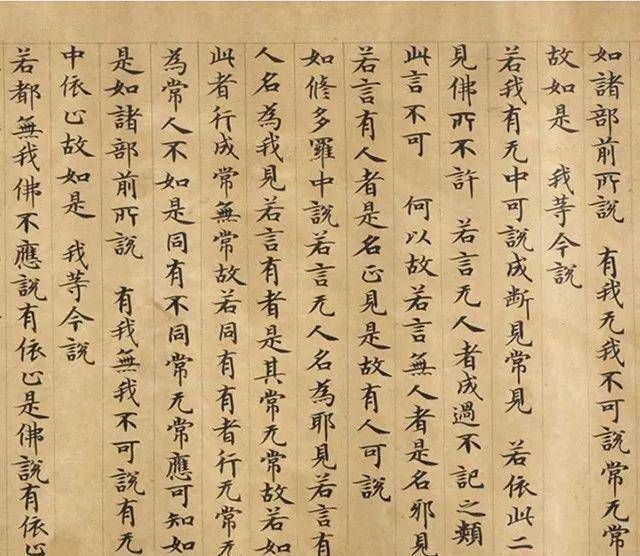 如諸部前所說 有我无我不可說常无常
故如是 我等今說
若我有无中可說成断見常見 若依此二
見佛所不許 若言无人者成過不記之類
此言不可 何以故若言無人者是名邪見
若言有人者是名正見是故有人可說
如脩多羅中說若言无人名為耶見若言有
人名為我見若言有者是其常无常故若如
此者行成常無常故若同有有者行无常无
為常人不如是同有不同常无常應可知如
是如諸部前所說 有我無我不可說有无
中依止故如是 我等今說
若都無我佛不應說有依止是佛說有依止